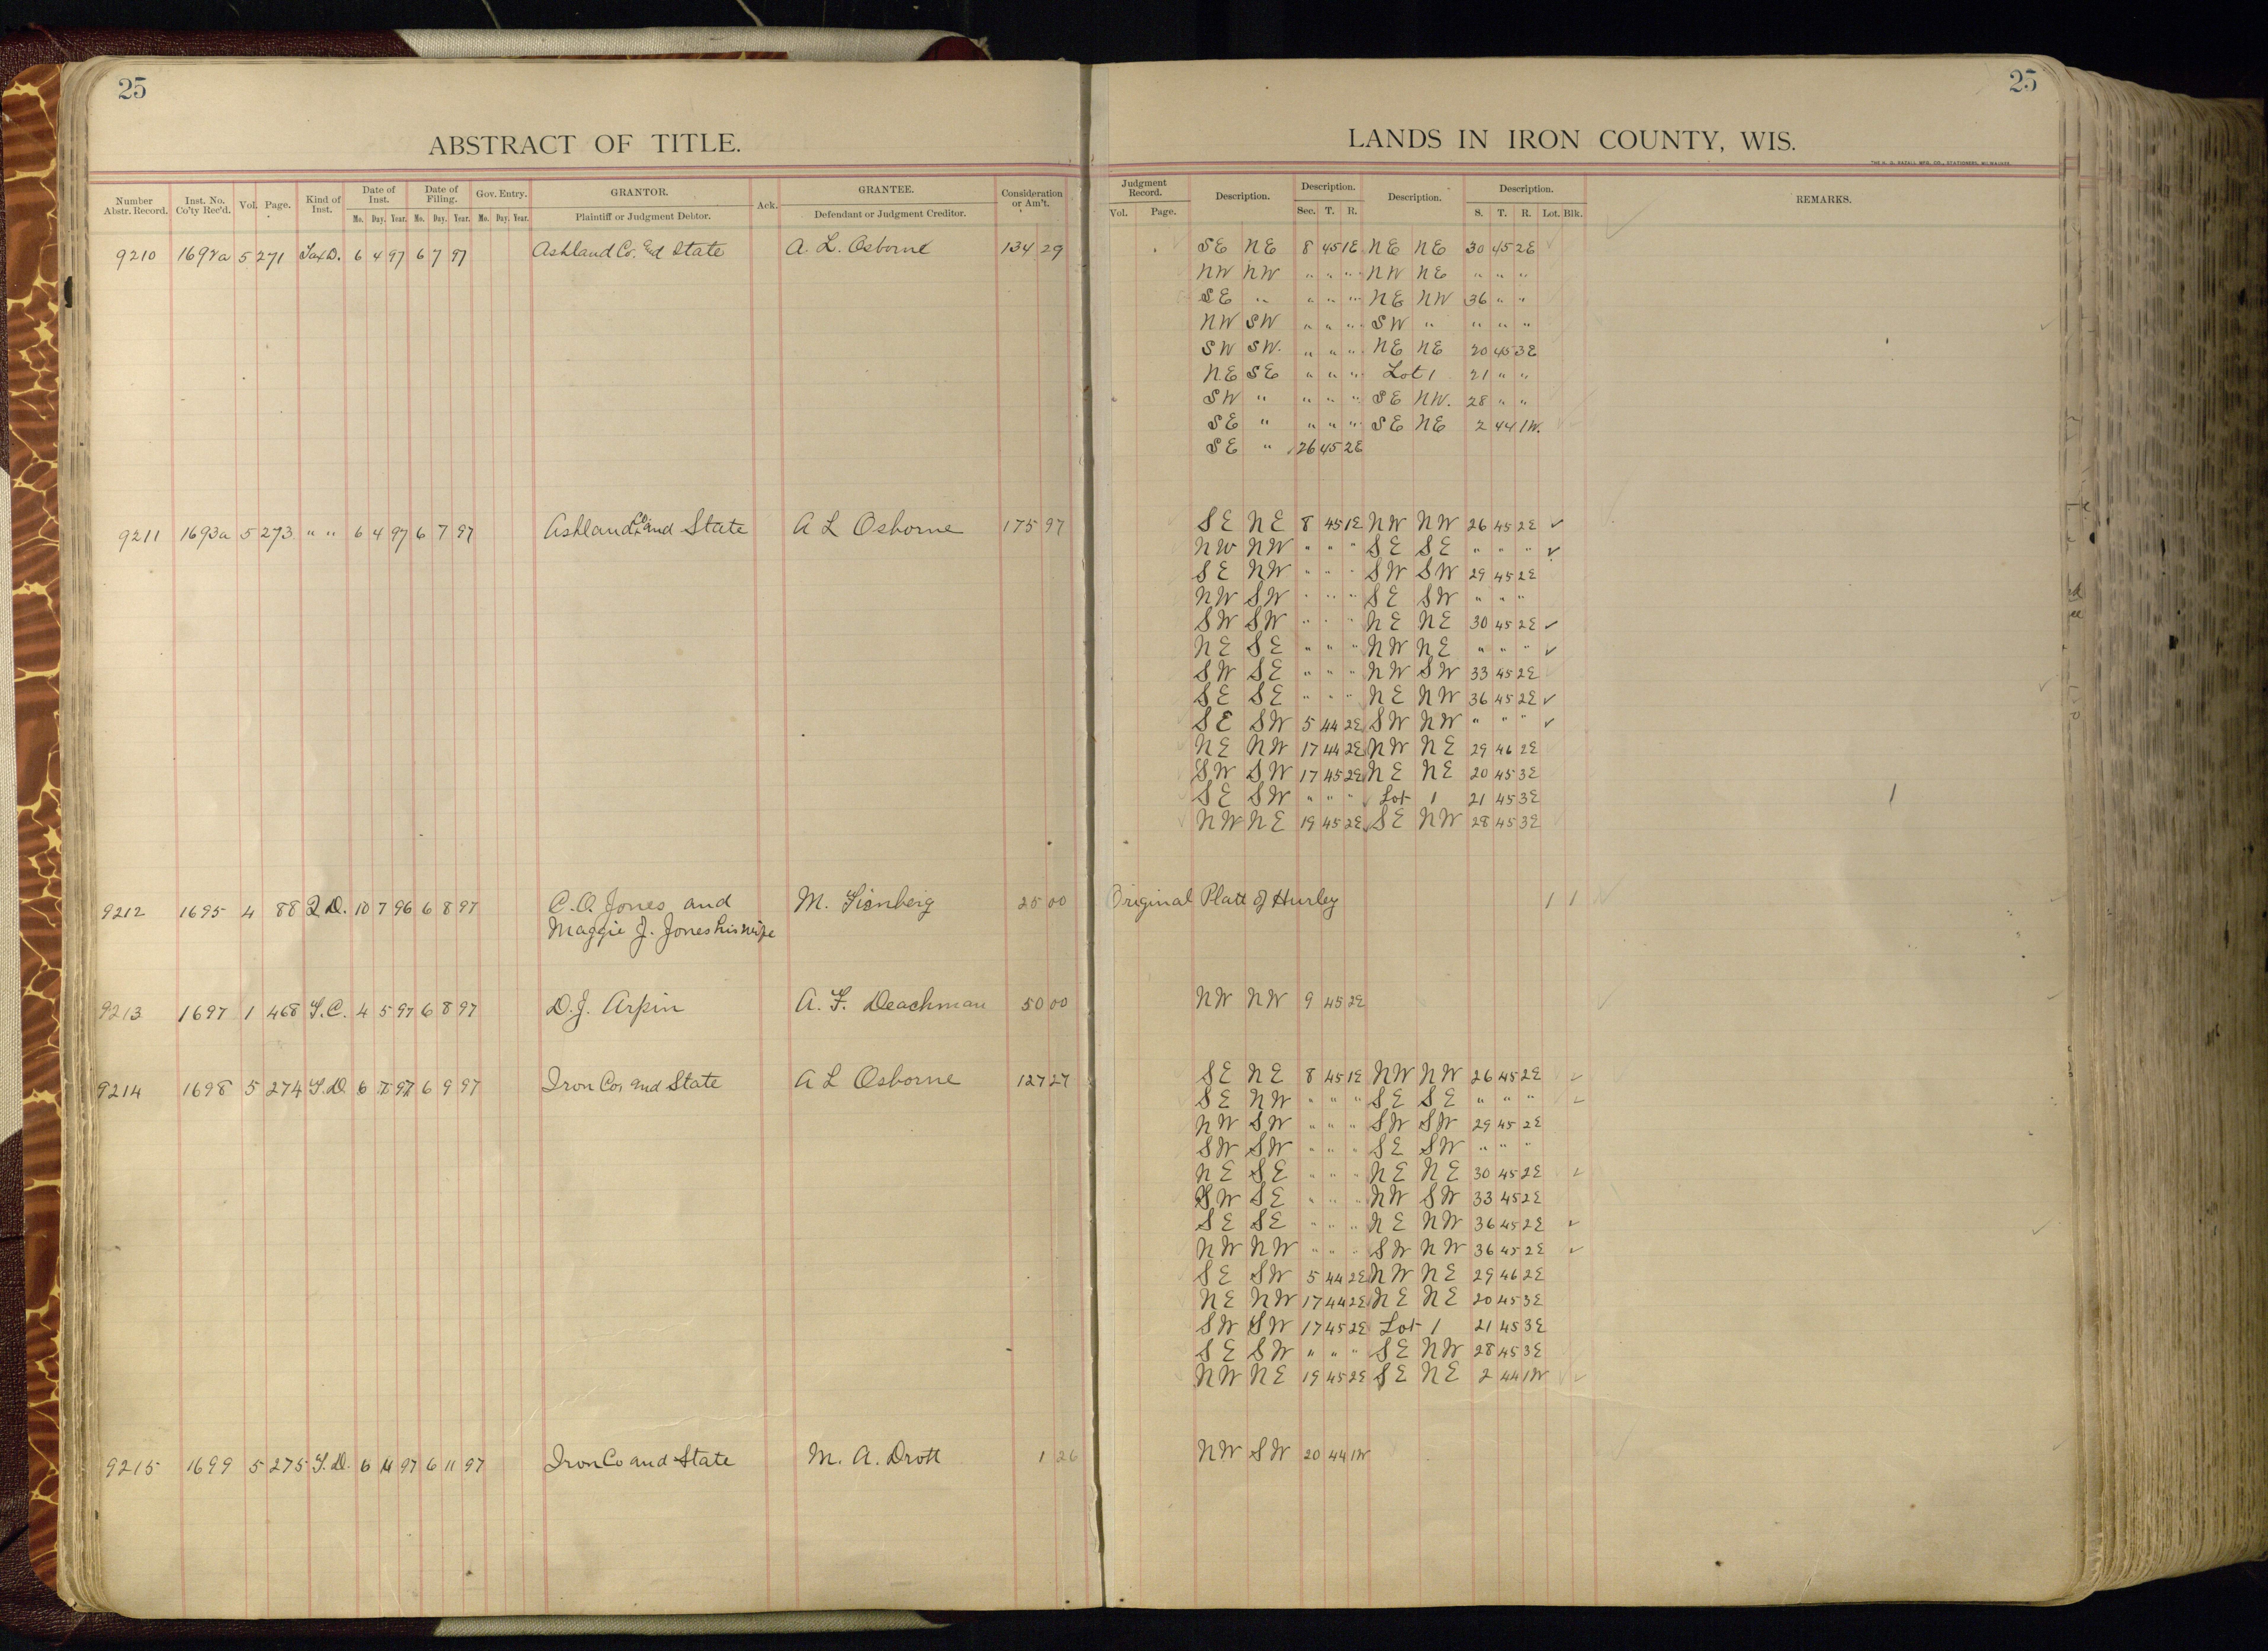 25
25
ABSTRACT OF TITLE.
LANDS IN IRON COUNTY, WIS.
Number Abstr. Record. Inst. No. Co'ty Rec'd. Vol. Page. Kind of Inst. Date of Inst. Mo. Day. Year. Date of Filing. Mo. Day. Year. Gov. Entry. Mo. Day. Year. GRANTOR. Plaintiff or Judgment Debtor. Ack. GRANTEE. Defendant or Judgment Creditor. Consideration or Am't.
Judgment Record. Vol. Page. Description. Description. Sec. T. R. Description. Description. S. T. R. Lot. Blk. REMARKS.
9210 1692a 5 271 Tax D. 6 4 97 6 7 97 Ashland Co. and State A. L. Osborne 134 29 SE NE 8 45 1E NE NE 30 45 2E
NW NW " " " NW NE " " "
SE " " " " NE NW 36 " "
NW SW " " " SW " " " "
SW SW. " " " NE NE 20 45 3E
NE SE " " " Lot 1 21 " "
SW " " " " SE NW. 28 " "
SE " " " " SE NE 2 44 1W.
SE " 26 45 2E
9211 1693a 5 273 " " 6 4 97 6 7 97 Ashland Co. and State A L Osborne 175 97 SE NE 8 45 1E NW NW 26 45 2E ✓
NW NW " " " SE SE " " " ✓
SE NW " " " SW SW 29 45 2E
NW SW " " " SE SW " " "
SW SW " " " NE NE 30 45 2E ✓
NE SE " " " NW NE " " " ✓
SW SE " " " NW SW 33 45 2E
SE SE " " " NE NW 36 45 2E ✓
SE SW 5 44 2E SW NW " " " ✓
NE NW 17 44 2E NW NE 29 46 2E
SW SW 17 45 2E NE NE 20 45 3E
SE SW " " " Lot 1 21 45 3E
NW NE 19 45 2E SE NW 28 45 3E
9212 1695 4 88 Q D. 10 7 96 6 8 97 C. O. Jones and M. Sienberg 25 00 Original Platt of Hurley 1 1
Maggie J. Jones his wife
9213 1697 1 468 T. C. 4 5 97 6 8 97 D. J. Arpin A. F. Deachman 50 00 NW NW 9 45 2E
9214 1698 5 274 T. D. 6 8 97 6 9 97 Iron Co. and State A L Osborne 127 27 SE NE 8 45 1E NW NW 26 45 2E ✓
SE NW " " " SE SE " " " ✓
NW SW " " " SW SW 29 45 2E
SW SW " " " SE SW " " "
NE SE " " " NE NE 30 45 2E ✓
SW SE " " " NW SW 33 45 2E
SE SE " " " NE NW 36 45 2E ✓
NW NW " " " SW NW 36 45 2E ✓
SE SW 5 44 2E NW NE 29 46 2E
NE NW 17 44 2E NE NE 20 45 3E
SW SW 17 45 2E Lot 1 21 45 3E
SE SW " " " SE NW 28 45 3E
NW NE 19 45 2E SE NE 2 44 1W
9215 1699 5 275 T. D. 6 11 97 6 11 97 Iron Co and State M. A. Drott 1 26 NW SW 20 44 1W